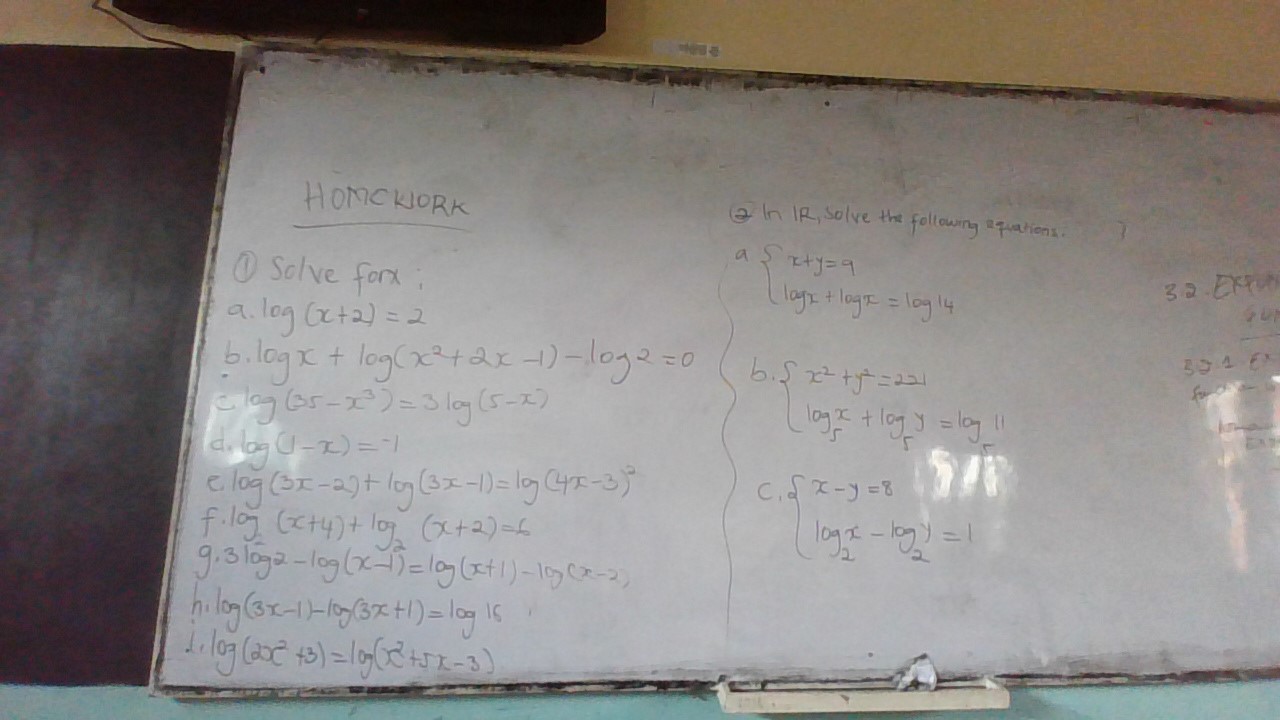 HOMEWORK
① Solve for x;
a. log (x+2) = 2
b. log x + log(x²+2x-1) - log 2 = 0
c. log (35-x³) = 3 log (5-x)
d. log (1-x) = -1
e. log (3x-2) + log (3x-1) = log (4x-3)²
f. log₂ (x+4) + log₂ (x+2) = 6
g. 3 log 2 - log (x-1) = log (x+1) - log (x-2)
h. log (3x-1) - log (3x+1) = log 16
i. log (2x²+3) = log (x²+5x-3)
② In IR, Solve the following equations.
a { x+y=9
log x + log x = log 14
b. { x²+y²=221
log₅x + log₅y = log₅11
c. { x-y=8
log₂x - log₂y = 1
3.2.
3.2.1